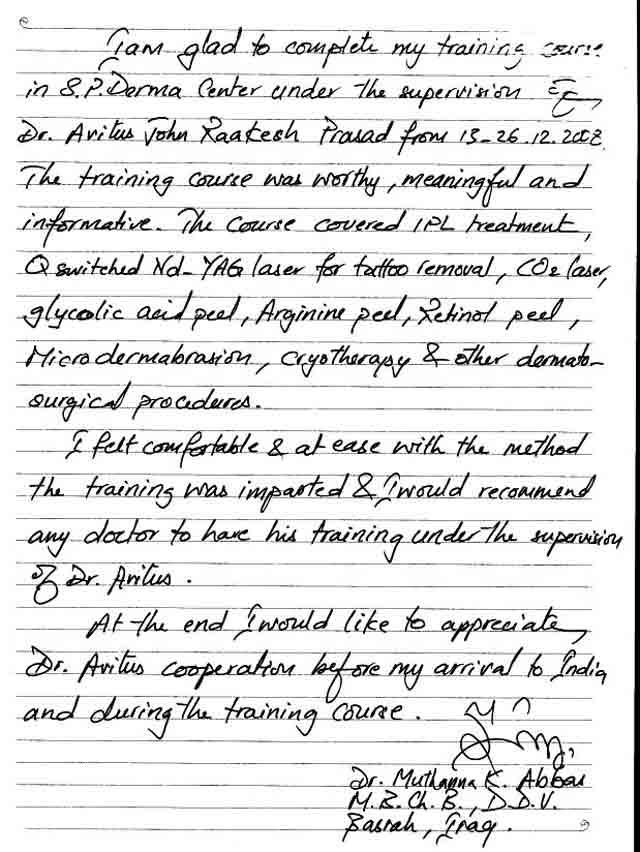 I am glad to complete my training course
in S.P. Derma Center under the supervision
Dr. Avitus John Raakesh Prasad from 13-26.12.2008.
The training course was worthy, meaningful and
informative. The course covered IPL treatment,
Q switched Nd-YAG laser for tattoo removal, CO2 laser,
glycolic acid peel, Arginine peel, Retinol peel,
Microdermabrasion, cryotherapy & other dermato-
surgical procedures.
I felt comfortable & at ease with the method
the training was imparted & I would recommend
any doctor to have his training under the supervision
of Dr. Avitus.
At the end I would like to appreciate,
Dr. Avitus cooperation before my arrival to India
and during the training course.
Dr. Muthanna K. Abbas
M.B.Ch.B., D.D.V.
Basrah, Iraq.